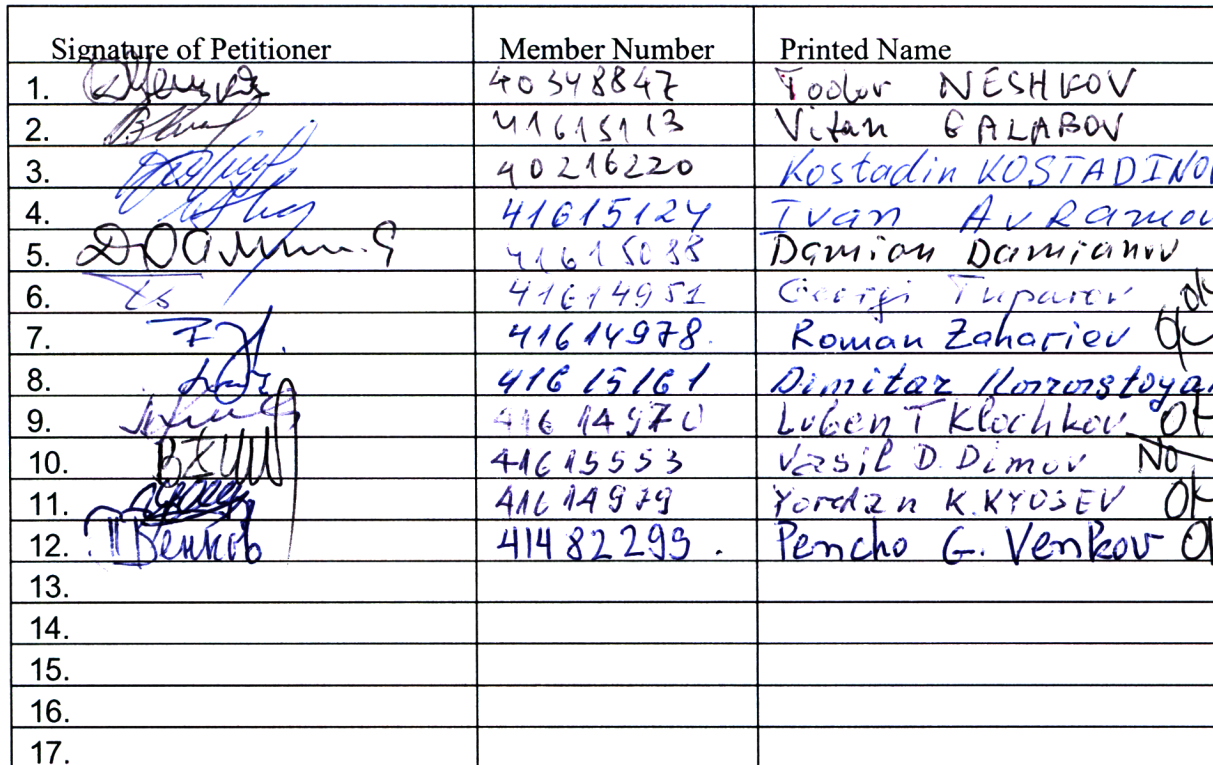 Signature of Petitioner Member Number Printed Name
1. 40348847 Todor NESHKOV
2. 41615113 Vitan GALABOV
3. 40216220 Kostadin KOSTADINOV
4. 41615124 Ivan AvRamov
5. 41615088 Damian Damianov
6. 41614951 Georgi Tuparov ok
7. 41614978. Roman Zahariev
8. 41615161 Dimitar
9. 41614970 Luben T Klochkov OK
10. 41615553 Vasil D. Dimov No
11. 41614979 Yordan K. KYOSEV OK
12. ПВенков 41482299. Pencho G. Venkov
13.
14.
15.
16.
17.